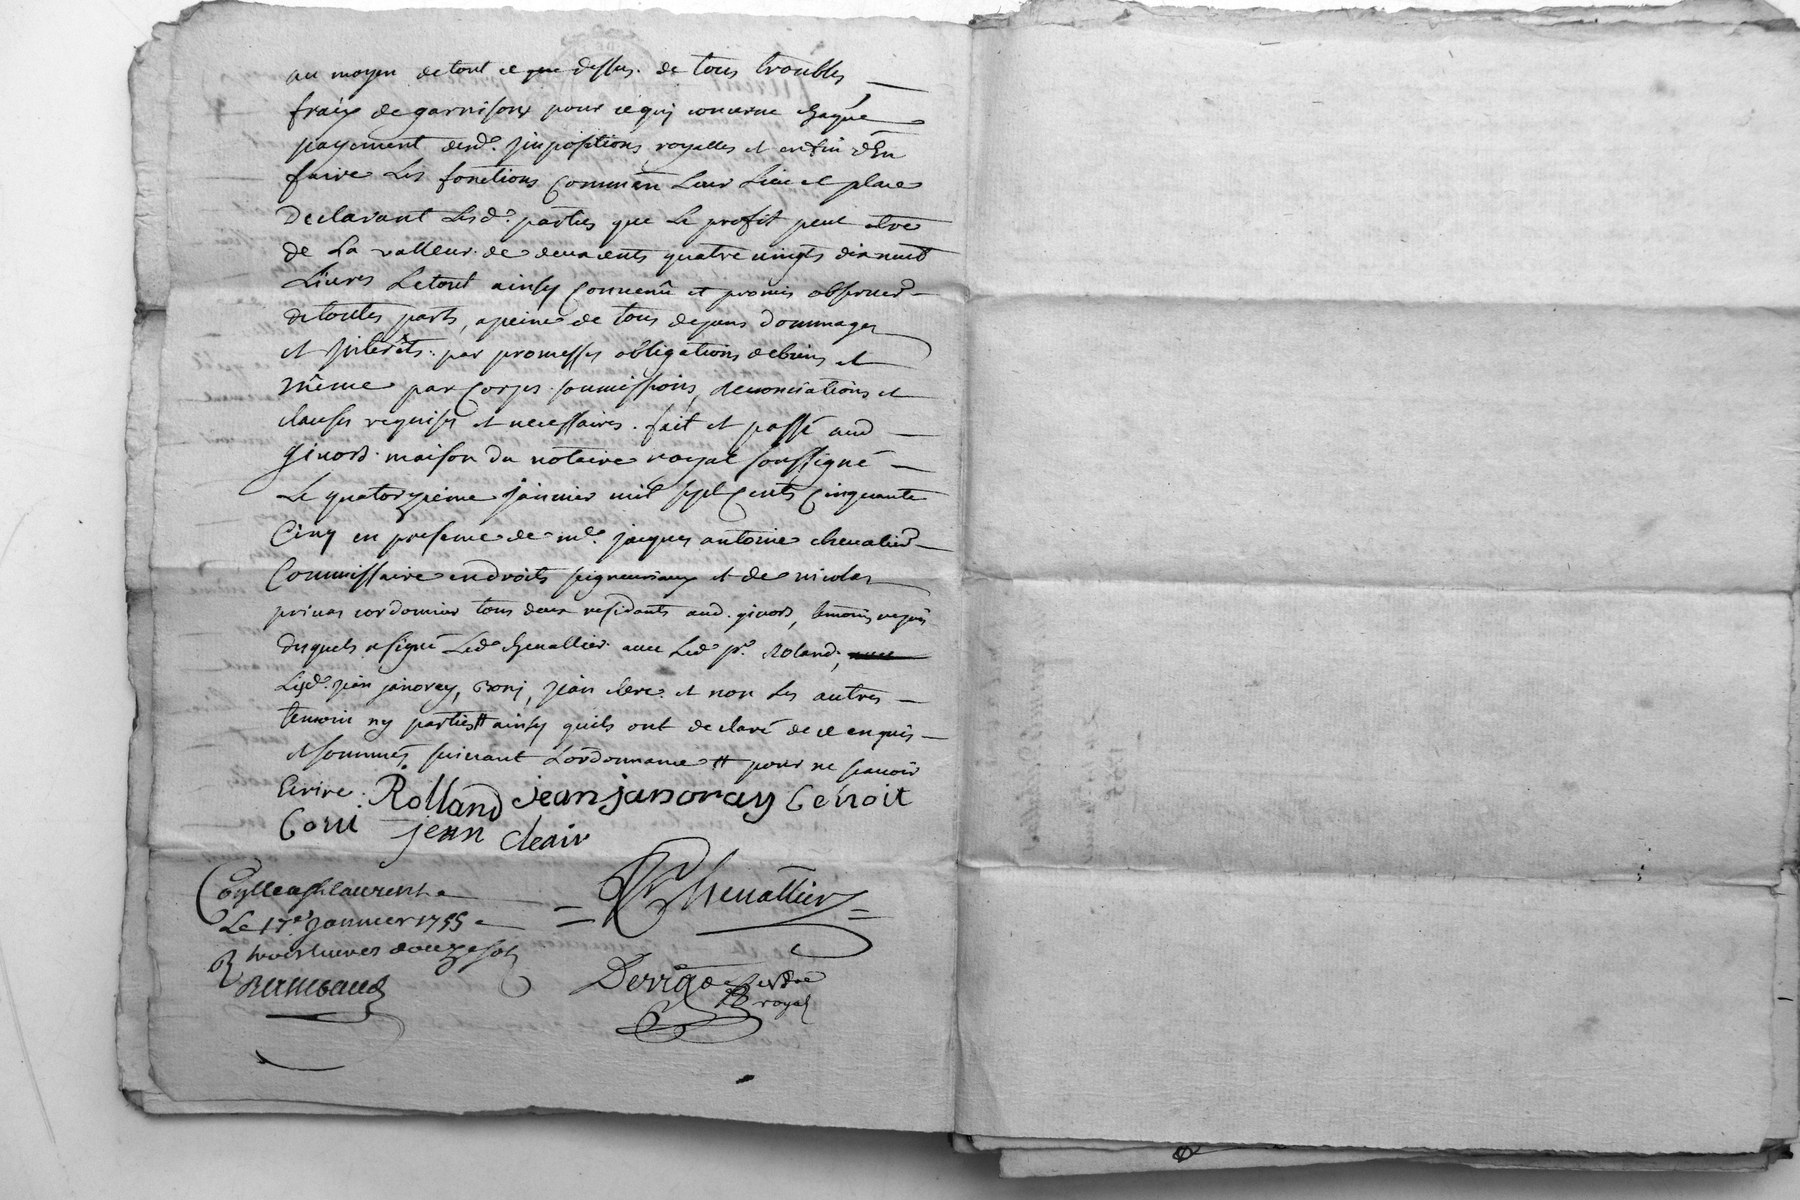 au moyen de tout ce que dessus. de tous troubles
fraix de garnisons pour ce quj concerne chaque
payement desd. jmpositions royalles et enfin d'En
faire Les fonctions Comme en Leur Lieu et place
Declarant Lesd. parties que Le profit peut etre
de La valleur de deux cents quatre vingts dix neuf
Livres Le tout ainsy Convenû et promis observer
de toutes parts, a peine de tous depens dommages
et jnterêts. par promesses obligations de biens et
même par Corps. soumissions, renonciations et
clauses requises et necessaires. fait et passé aud
givors. maison du notaire royal soussigné
Le quatorzieme janvier mil sept Cents Cinquante
Cinq en presence de me. jacques antoine chevalier
Commissaire en droits seigneuriaux et de nicolas
privas cordonnier tous deux residants aud. givors, temoins requis
desquels a signé Led. Chevallier avec Led. sr. Roland,
Lesd. jean janoray, Conj, jean clerc et non Les autres
temoin ny parties # ainsy quils ont declaré de ce enquis
et sommés suivant Lordonnance # pour ne scavoir
Ecrire. Rolland jean janoray Benoit
Coni jean cleair
Conlle a St laurent
Le 17e. janvier 1755
R trois Livres douze sols
Chevallier